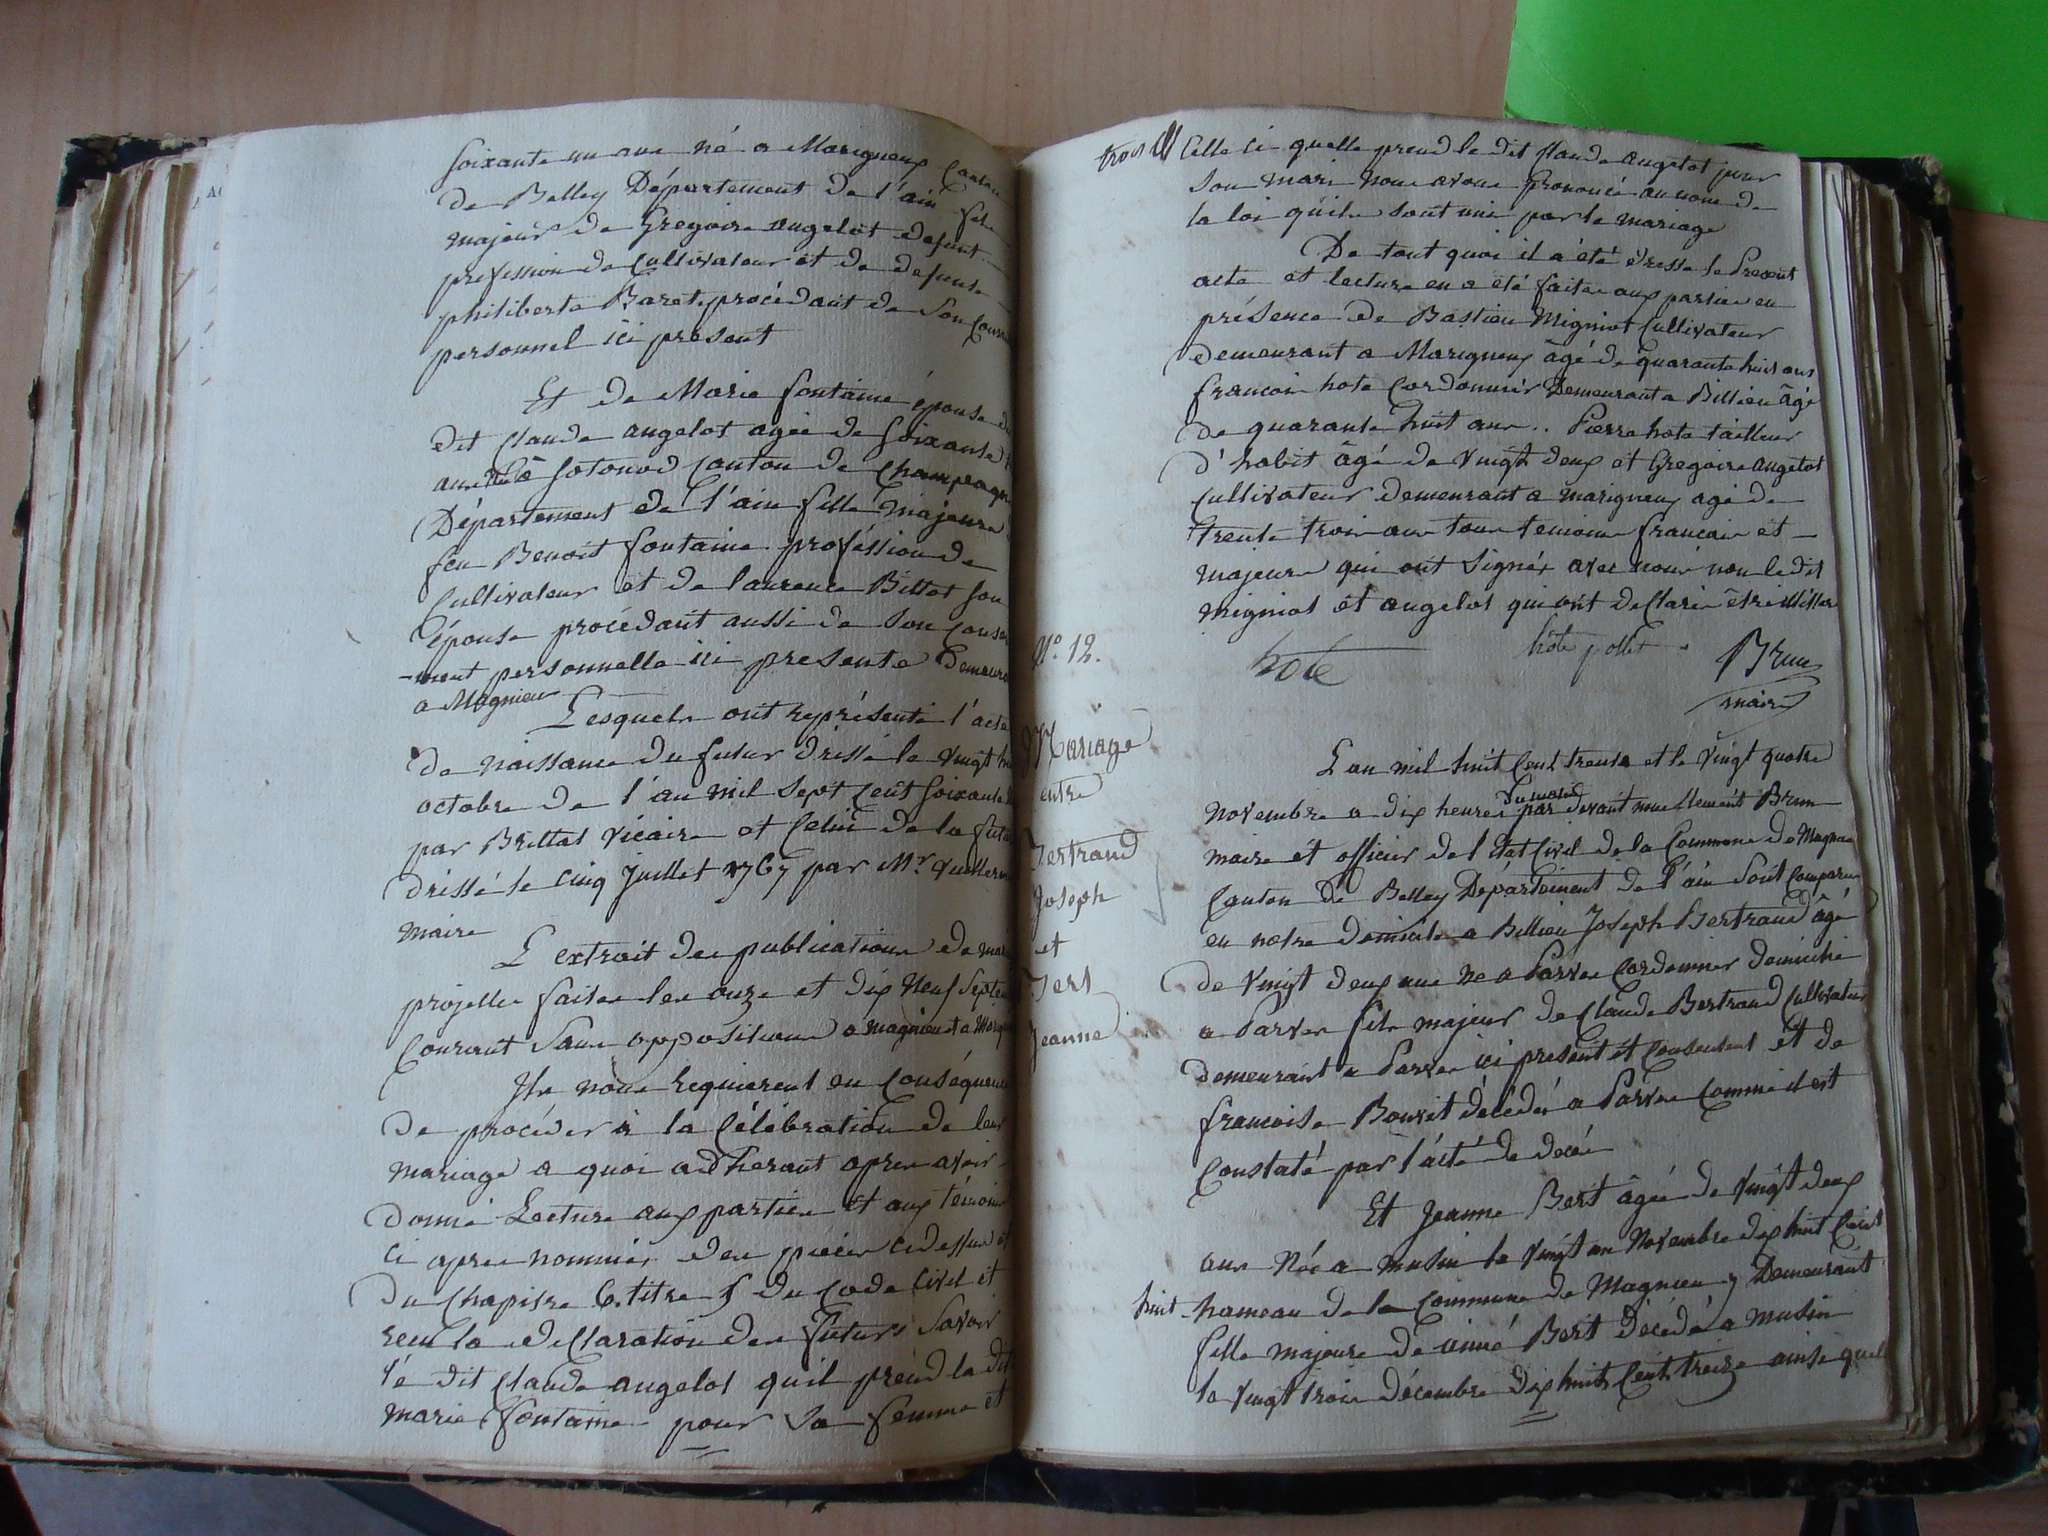 soixante un ans né a Marigneux Canton
de Belley Département de l'ain fils
majeur de Gregoire angelot defunt
profession de Cultivateur et de defunte
philiberte Baret procédant de Son
personnel ici présent
Et de Marie fontaine épouse du
dit Claude angelot agée de Soixante
ans Née à Sotonod Canton de Champagne
Département de l'ain fille majeure
feu Benoit fontaine profession de
Cultivateur et de laurence Billot Son
épouse procédant aussi de Son Conse
-ment personnelle ici presente Demeura
a Magnieu
Lesquels ont représenté l'acte
de naissance du futur dressé le vingt
octobre de l'an mil Sept Cent Soixante
par Brillat vicaire et Celui de la future
dréssé le cinq Juillet 1767 par Mr
maire
L'extrait des publications de
projettes faites les onze et dix Neuf Septem
Courant Sans oppositions a magnieu et a
Ils nous Requierent en Conséquence
de procéder à la Célébration de leur
mariage a quoi adherant apres avoir
donné Lecture aux parties et aux témoins
ci apres nommés des pieces cidessus et
du Chapitre 6. titre 5 du Code Civil et
recu la déClaration des Futurs Savoir
lé dit Claude angelot qu'il prend la dite
marie fontaine pour Sa femme et
trois Celle ci quelle prend le dit Claude angelot pour
Son mari Nous avons prononcé au nom de
la loi qu'ils sont unis par le mariage
De tout quoi il a été dressé le Present
acte et lecture en a été faite aux parties en
présence de Bastien Migniot Cultivateur
demeurant a Marigneux âgé de quarante huit ans
francois hote Cordonnier Demeurant a Billieu âgé
de quarante huit ans.. Pierre hote tailleur
d'habit âgé de vingt deux et Gregoire angelot
Cultivateur demeurant a marigneux agé de
trente trois ans tous temoins francais et
majeurs qui ont Signés avec nous non le dit
migniot et angelot qui ont déClaré être illitérés
hote hôte pollet Brun
maire
No 12.
Mariage
entre
Bertrand
Joseph
et
Bert
Jeanne
L'an mil huit Cent trente et le vingt quatre
Novembre a dix heures du matin par devant nous Clement Brun
maire et officier de l'état Civil de la Commune de Magnieu
Canton de Belley Département de l'ain Sont Comparus
en notre domicile a Billieu Joseph Bertrand âgé
de vingt deux ans né a Parves Cordonnier domicilié
a Parves fils majeur de Claude Bertrand Cultivateur
demeurant a Parves ici présent et Consentent et de
francoise Bouvet décédée a Parves Comme il est
Constaté par l'acté de décés
Et Jeanne Bert âgée de vingt deux
ans Née a musin le vingt un Novembre dix huit Cent
huit hameau de la Commune de Magnieu y Demeurant
fille majeure de aimé Bert décédé a musin
le vingt trois décembre dix huit Cent treize ainsi quil